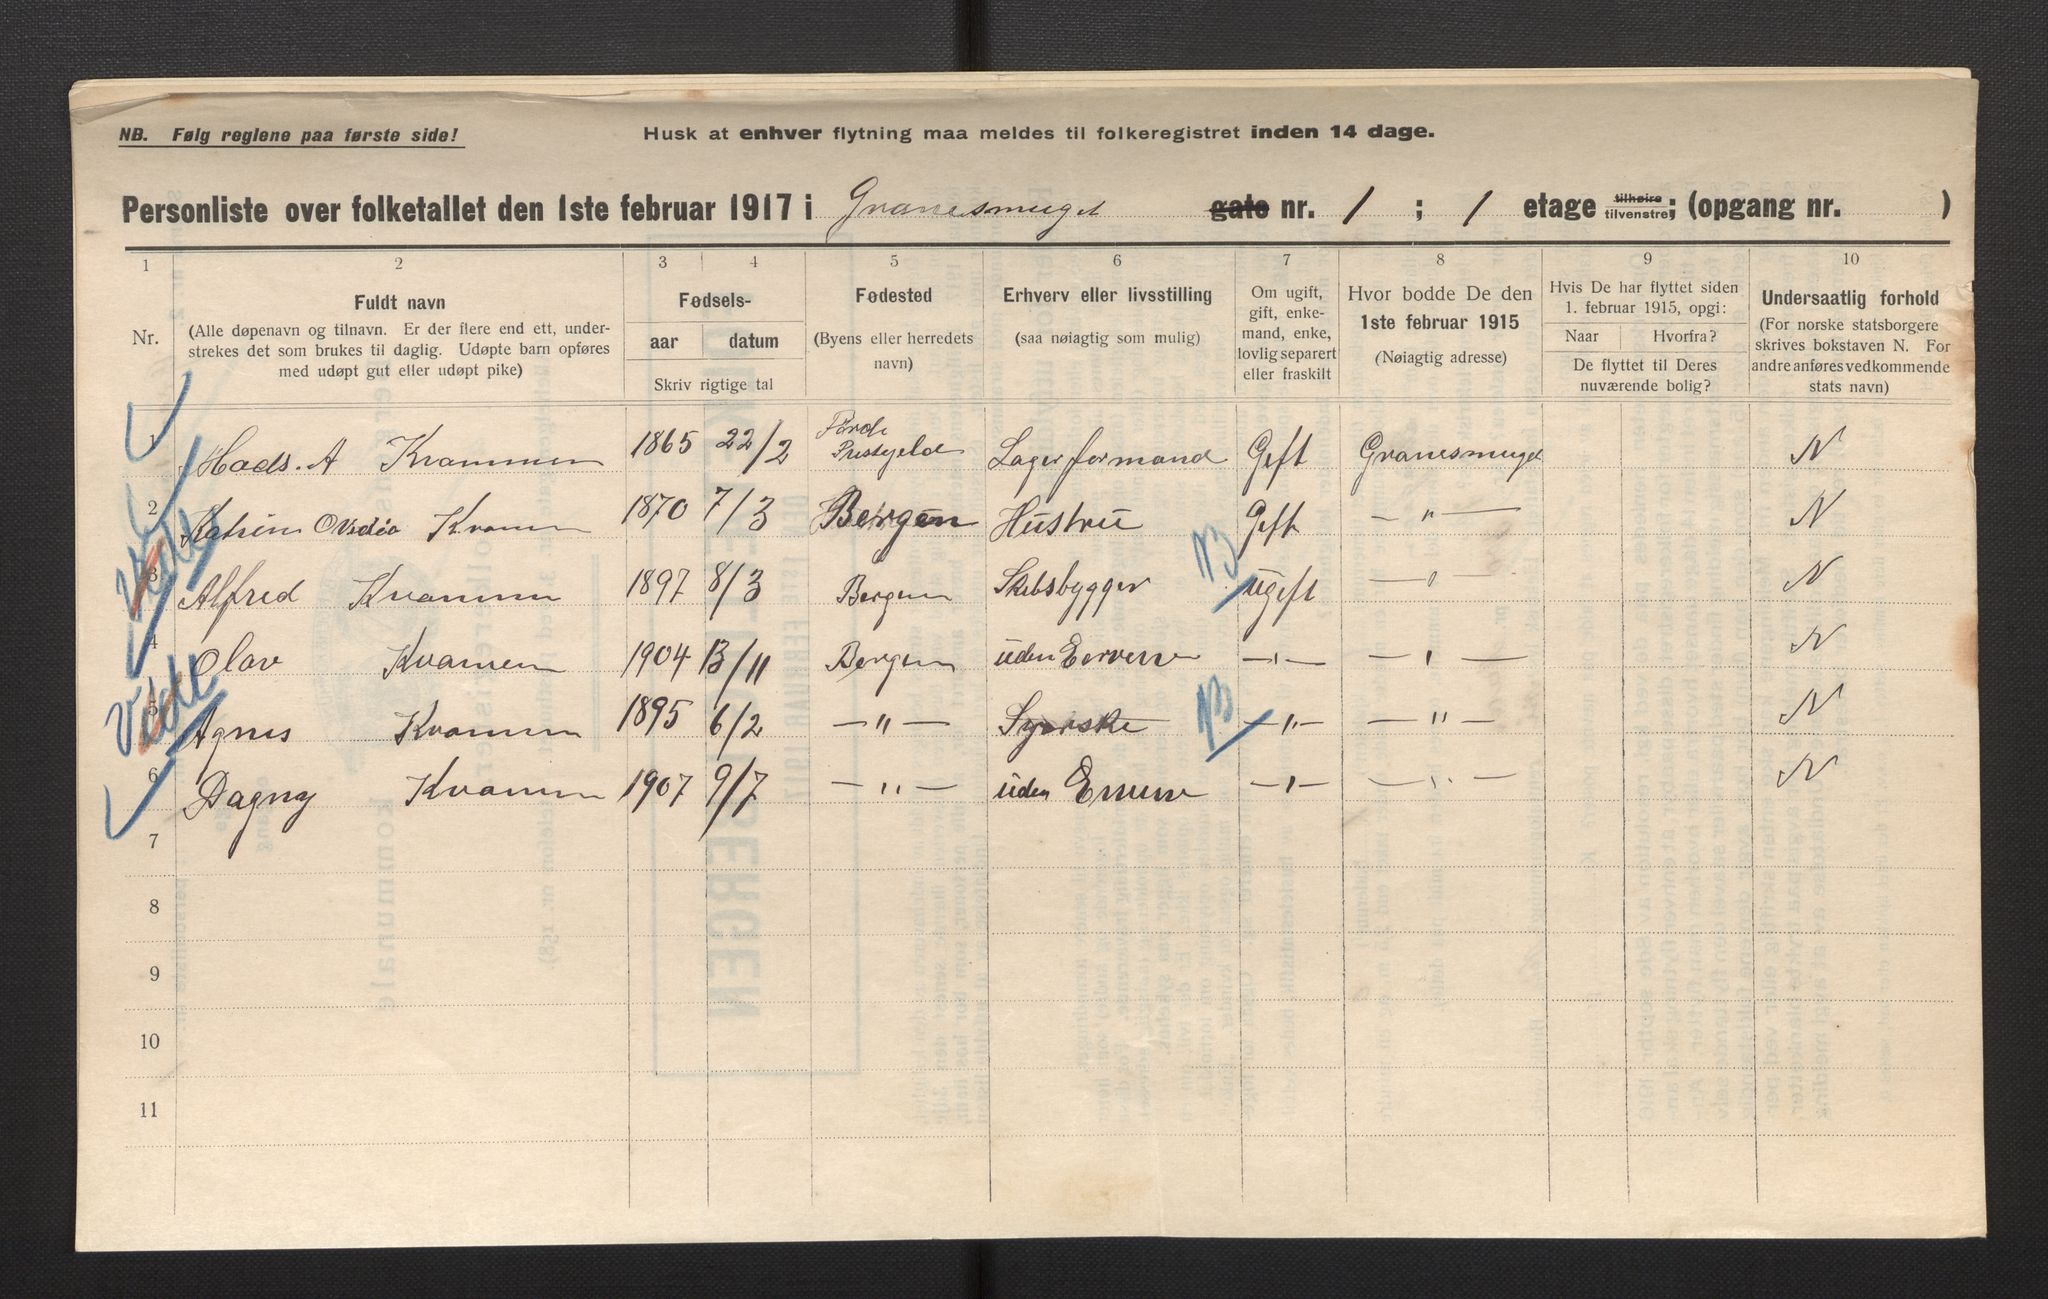 NB. Følg reglene paa første side!
Husk at enhver flytning maa meldes til folkeregistret inden 14 dage.
Personliste over folketallet den 1ste februar 1917 i Granesmuget gate nr. 1 ; 1 etage tilhøire tilvenstre; (opgang nr. )
1 2 3 4 5 6 7 8 9 10
Nr.
Fuldt navn
(Alle døpenavn og tilnavn. Er der flere end ett, under-
strekes det som brukes til daglig. Udøpte barn opføres
med udøpt gut eller udøpt pike)
Fødsels-
aar datum
Skriv rigtige tal
Fødested
(Byens eller herredets
navn)
Erhverv eller livsstilling
(saa nøiagtig som mulig)
Om ugift,
gift, enke-
mand, enke,
lovlig separert
eller fraskilt
Hvor bodde De den
1ste februar 1915
(Nøiagtig adresse)
Hvis De har flyttet siden
1. februar 1915, opgi:
Naar Hvorfra?
De flyttet til Deres
nuværende bolig?
Undersaatlig forhold
(For norske statsborgere
skrives bokstaven N. For
andre anføres vedkommende
stats navn)
1 Mads. A Kvammen 1865 22/2 Førde Prestegield Lagerformand Geft Granesmuget N
2 Katrine Kvamen 1870 7/3 Bergen Hustru Geft — " — N
3 Alfred Kvammen 1897 8/3 Bergen Skibsbygger ugeft — " — N
4 Olav Kvamen 1904 13/11 Bergen uden — " — — " — N
5 Agnes Kvamen 1895 6/2 — " — Syerske — " — — " — N
6 Dagny Kvamen 1907 9/7 — " — uden — " — — " — N
7
8
9
10
11